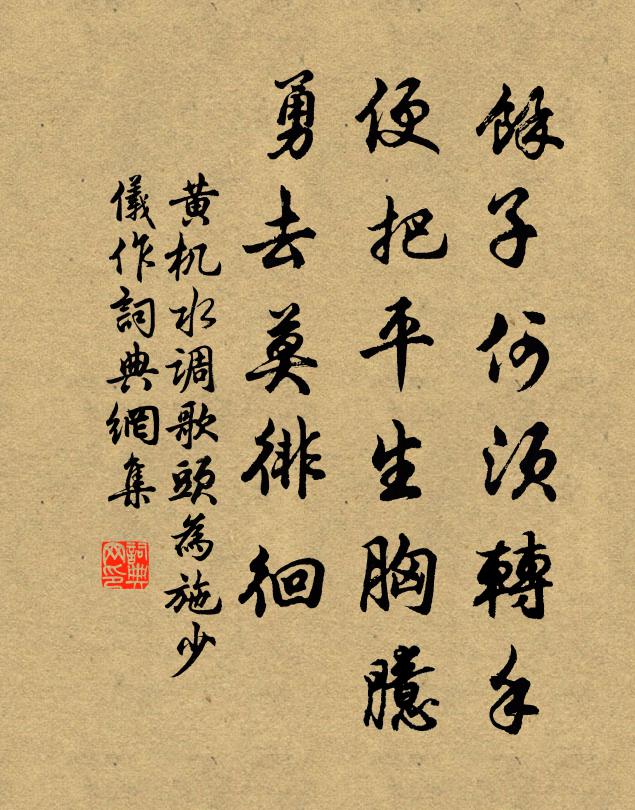 餘子何須轉手
便把平生胸臆
勇去莫徘徊
黄机水调歌頭為施少
儀作詞典網集
詞典網印